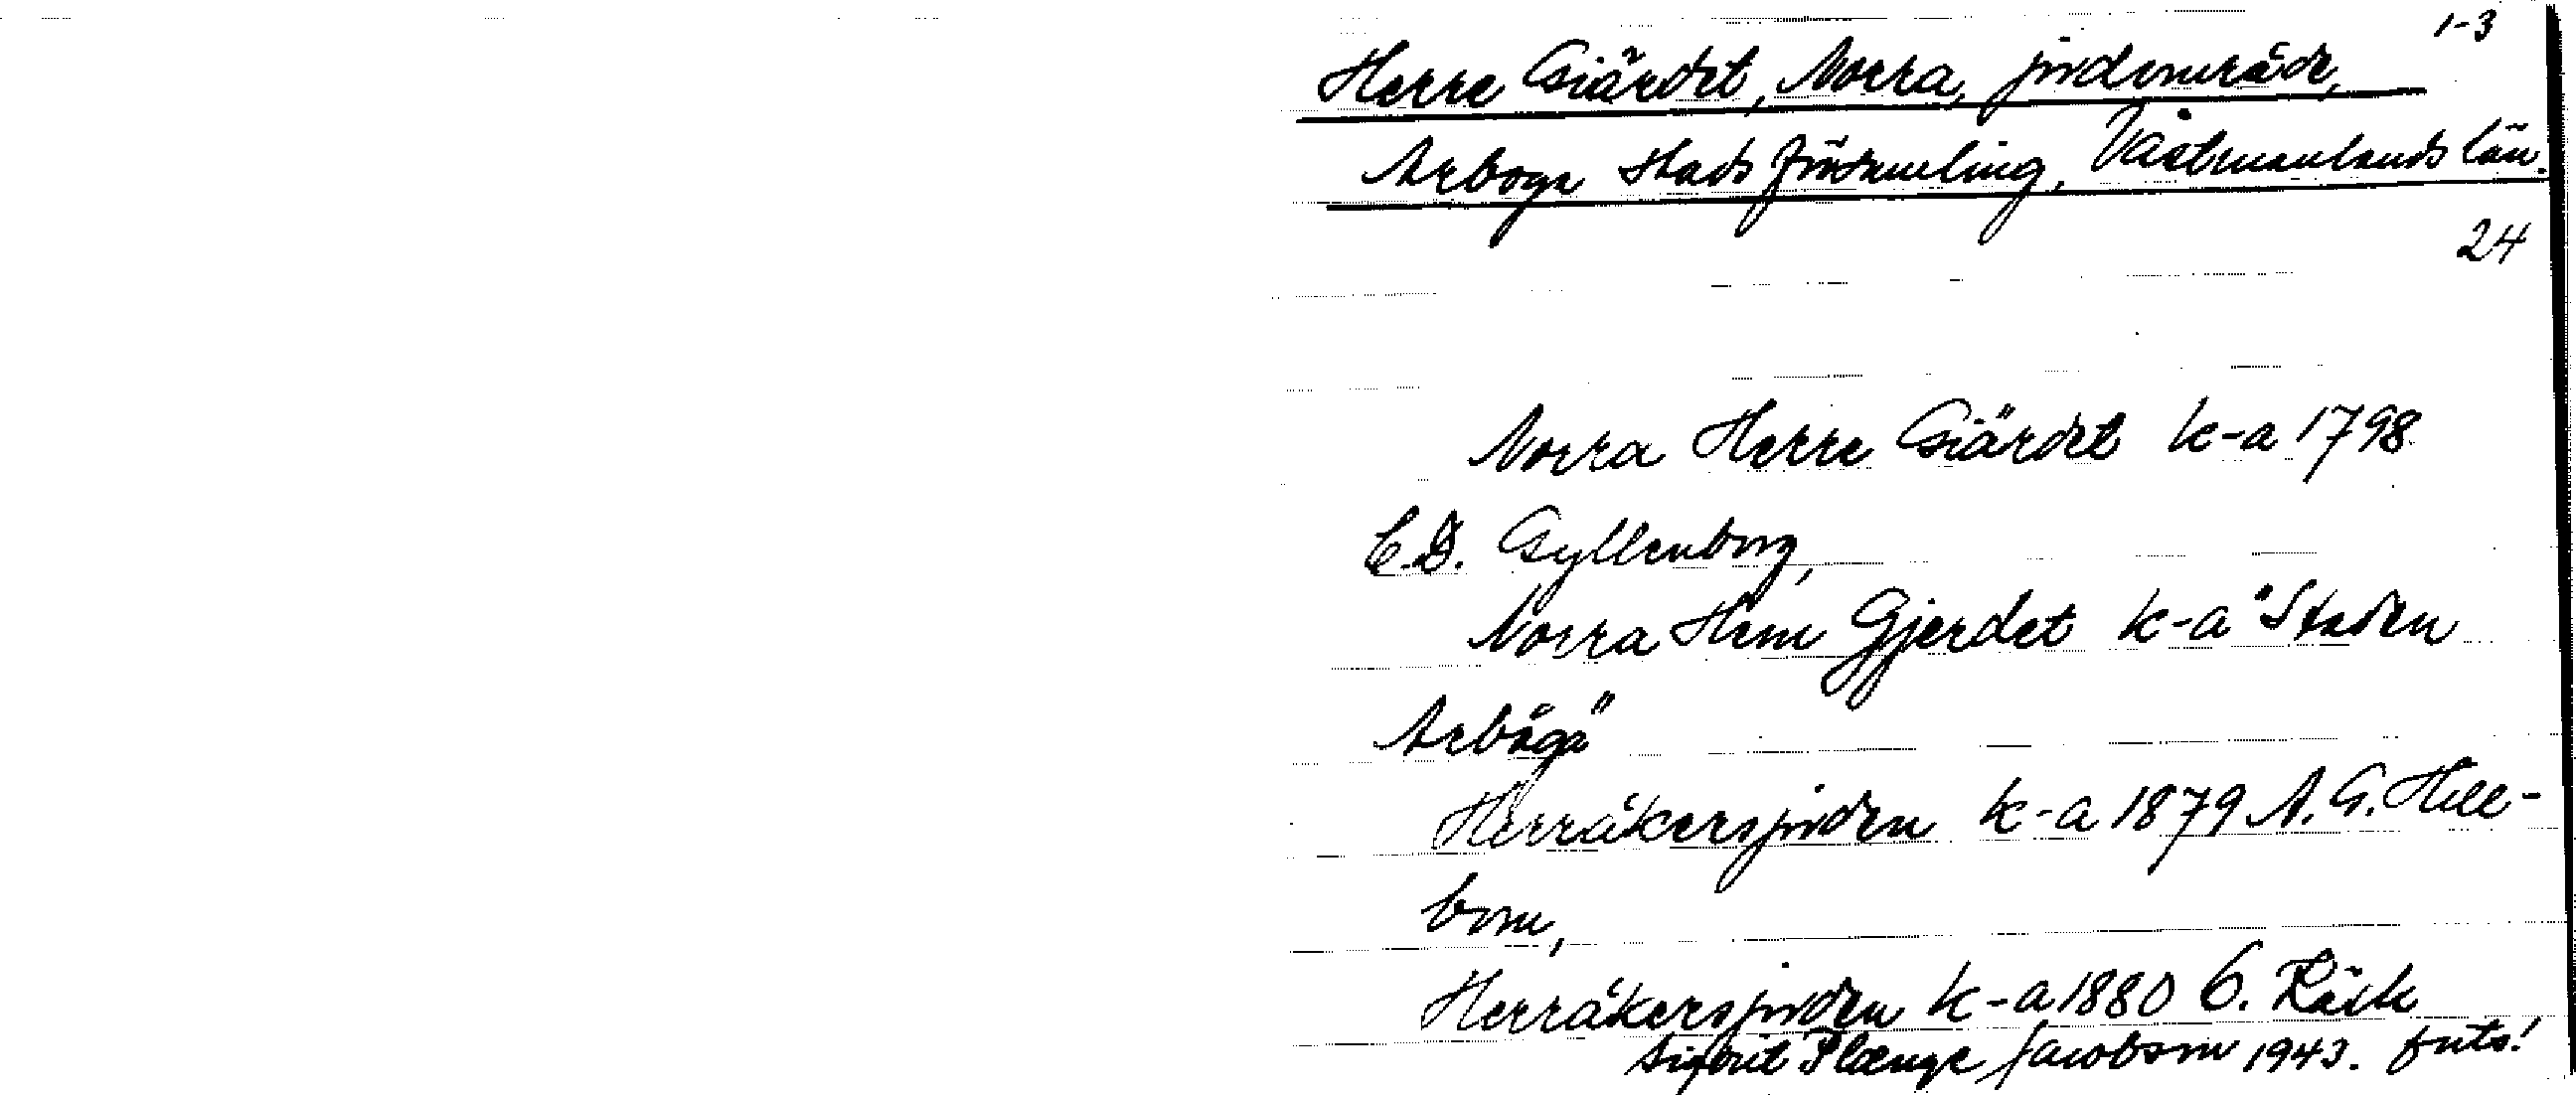 1-3
Herre Giärdet, Norra, jordområde,
Arboga stadsförsamling, Västmanlands län.
24
Norra Herre Giärdet k-a 1798
C.D. Gyllenborg,
Norra Herre Gjerdet k-a "Staden
Arboga"
Herråkersjorden k-a 1879 A. G. Hell-
bom,
Herråkersjorden k-a 1880 C. Räck
Sigbrit Plænge Jacobson 1943. forts!